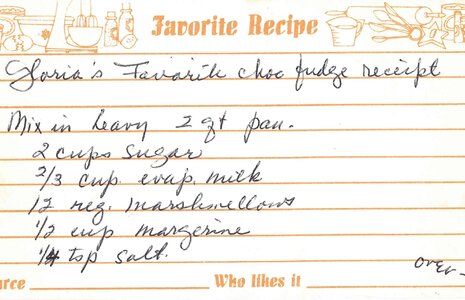 Favorite Recipe
Gloria's Favorite choc fudge receipt
Mix in heavy 2 qt pan.
2 cups sugar
2/3 cup evap. milk
12 reg. marshmellows
1/2 cup margerine
1/4 tsp salt.
over-
Who likes it